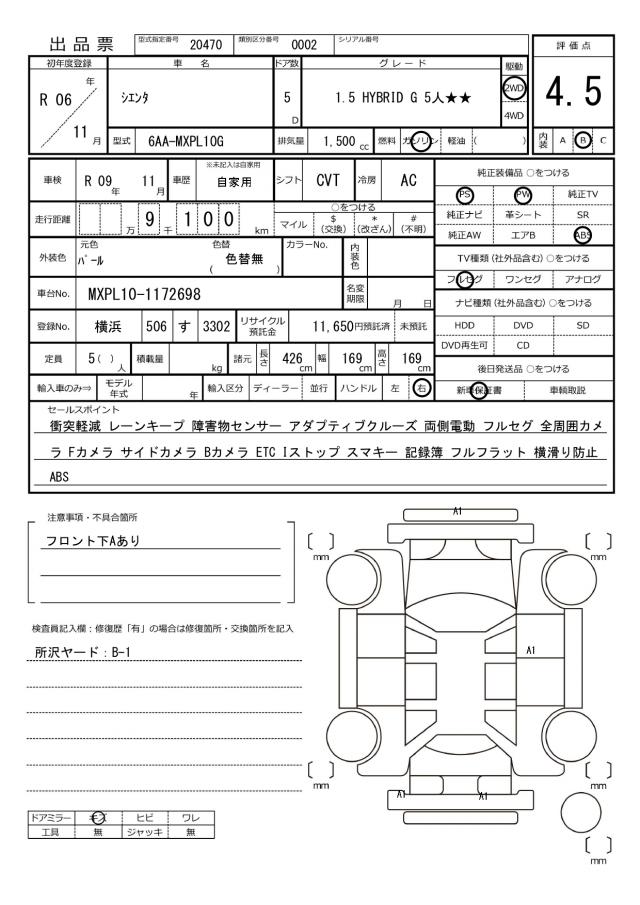 出品票
型式指定番号 20470 類別区分番号 0002 シリアル番号
評価点
4.5
初年度登録 車名 ドア数 グレード 駆動
R 06 年 11 月
シエンタ
5 D
1.5 HYBRID G 5人★★
2WD
4WD
型式 6AA-MXPL10G 排気量 1,500 cc 燃料 ガソリン 軽油 ( )
内装 A B C
車検 R 09 年 11 月 車歴 ※未記入は自家用 自家用 シフト CVT 冷房 AC
走行距離 9 万 千 1 0 0 km
○をつける
マイル $(交換) *(改ざん) #(不明)
外装色 元色 パール 色替 ( 色替無 ) カラーNo. 内装色
車台No. MXPL10-1172698 名変期限 月 日
登録No. 横浜 506 す 3302 リサイクル預託金 11,650円預託済 未預託
定員 5( ) 人 積載量 kg 諸元 長さ 426 cm 幅 169 cm 高さ 169 cm
輸入車のみ⇒ モデル年式 年 輸入区分 ディーラー 並行 ハンドル 左 右
純正装備品 ○をつける
PS PW 純正TV
純正ナビ 革シート SR
純正AW エアB ABS
TV種類(社外品含む) ○をつける
フルセグ ワンセグ アナログ
ナビ種類(社外品含む) ○をつける
HDD DVD SD
DVD再生可 CD
後日発送品 ○をつける
新車保証書 車輌取説
セールスポイント
衝突軽減 レーンキープ 障害物センサー アダプティブクルーズ 両側電動 フルセグ 全周囲カメ
ラ Fカメラ サイドカメラ Bカメラ ETC Iストップ スマキー 記録簿 フルフラット 横滑り防止
ABS
注意事項・不具合箇所
フロント下Aあり
検査員記入欄：修復歴「有」の場合は修復箇所・交換箇所を記入
所沢ヤード：B-1
ドアミラー キズ ヒビ ワレ
工具 無 ジャッキ 無
A1
mm
mm
A1
mm
mm
A1
A1
mm